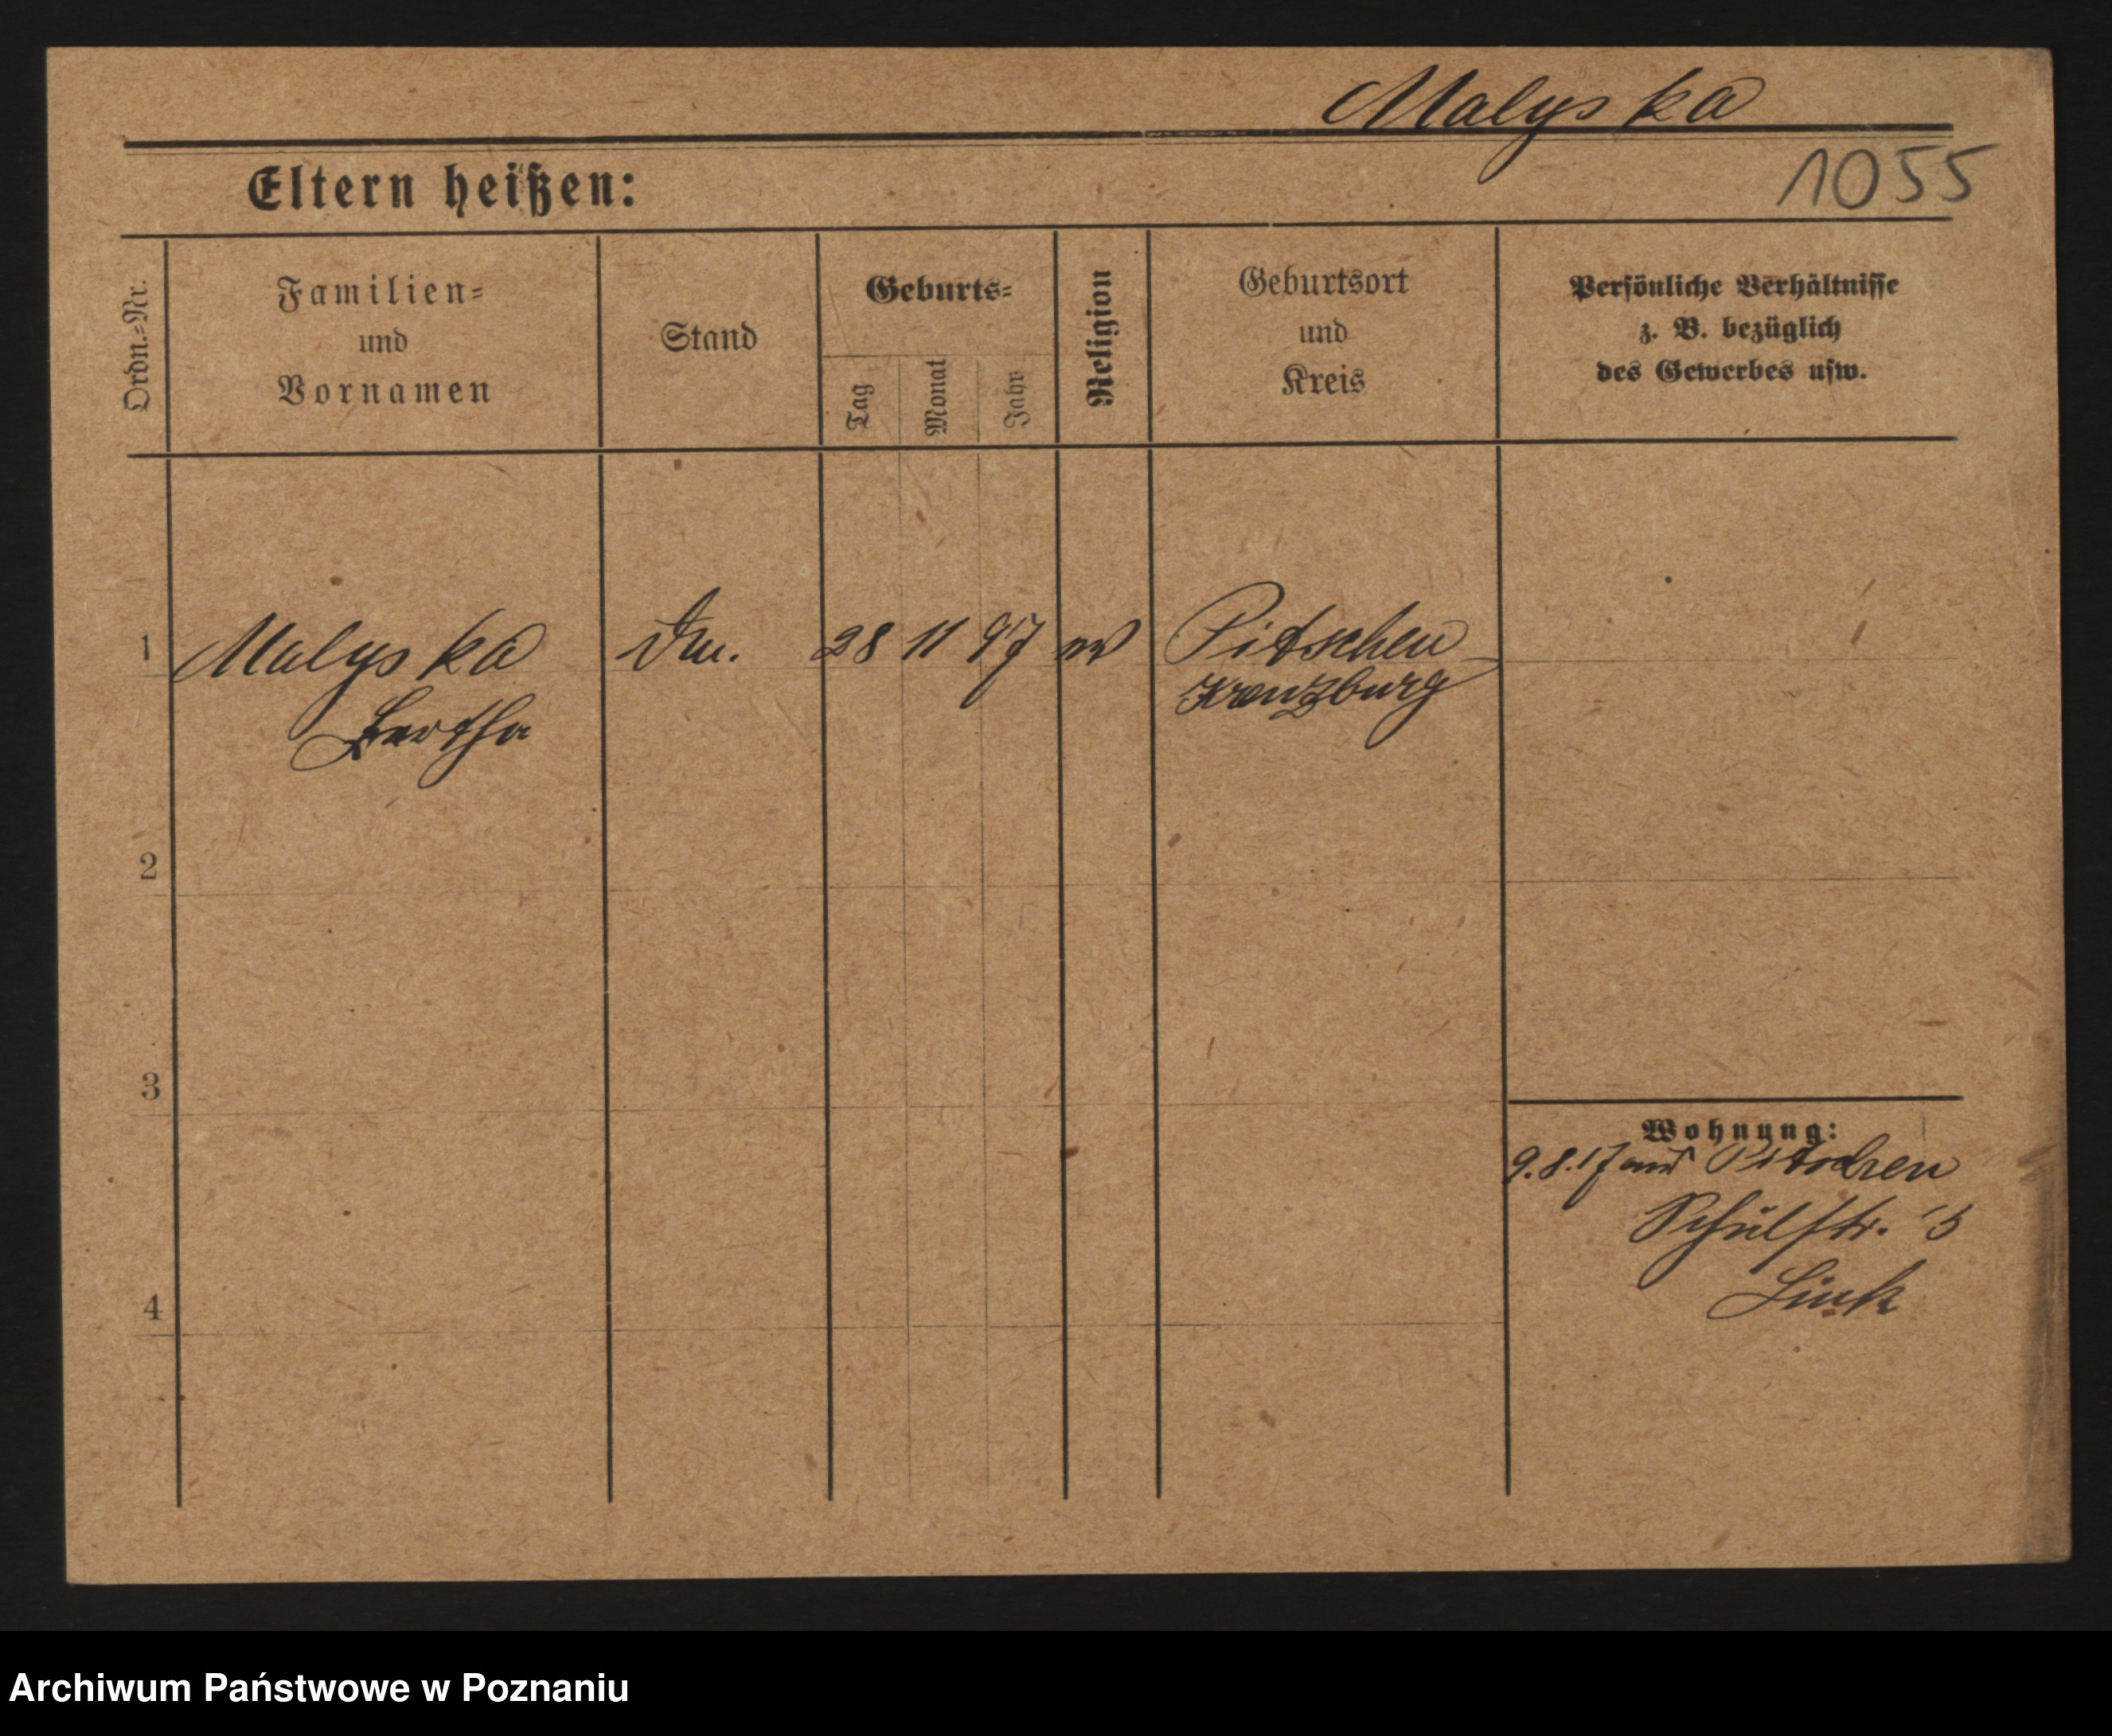 Malyska
1055
Eltern heißen:
Ordn.-Nr.
Familien-
und
Vornamen
Stand
Geburts-
Tag
Monat
Jahr
Religion
Geburtsort
und
Kreis
Persönliche Verhältnisse
z. B. bezüglich
des Gewerbes usw.
1 Malyska 28 11 97 Pitschen
Bertha Kreuzburg
2
3
4
Wohnung:
9.8.17 aus Pitschen
Schulstr.
Link
Archiwum Państwowe w Poznaniu